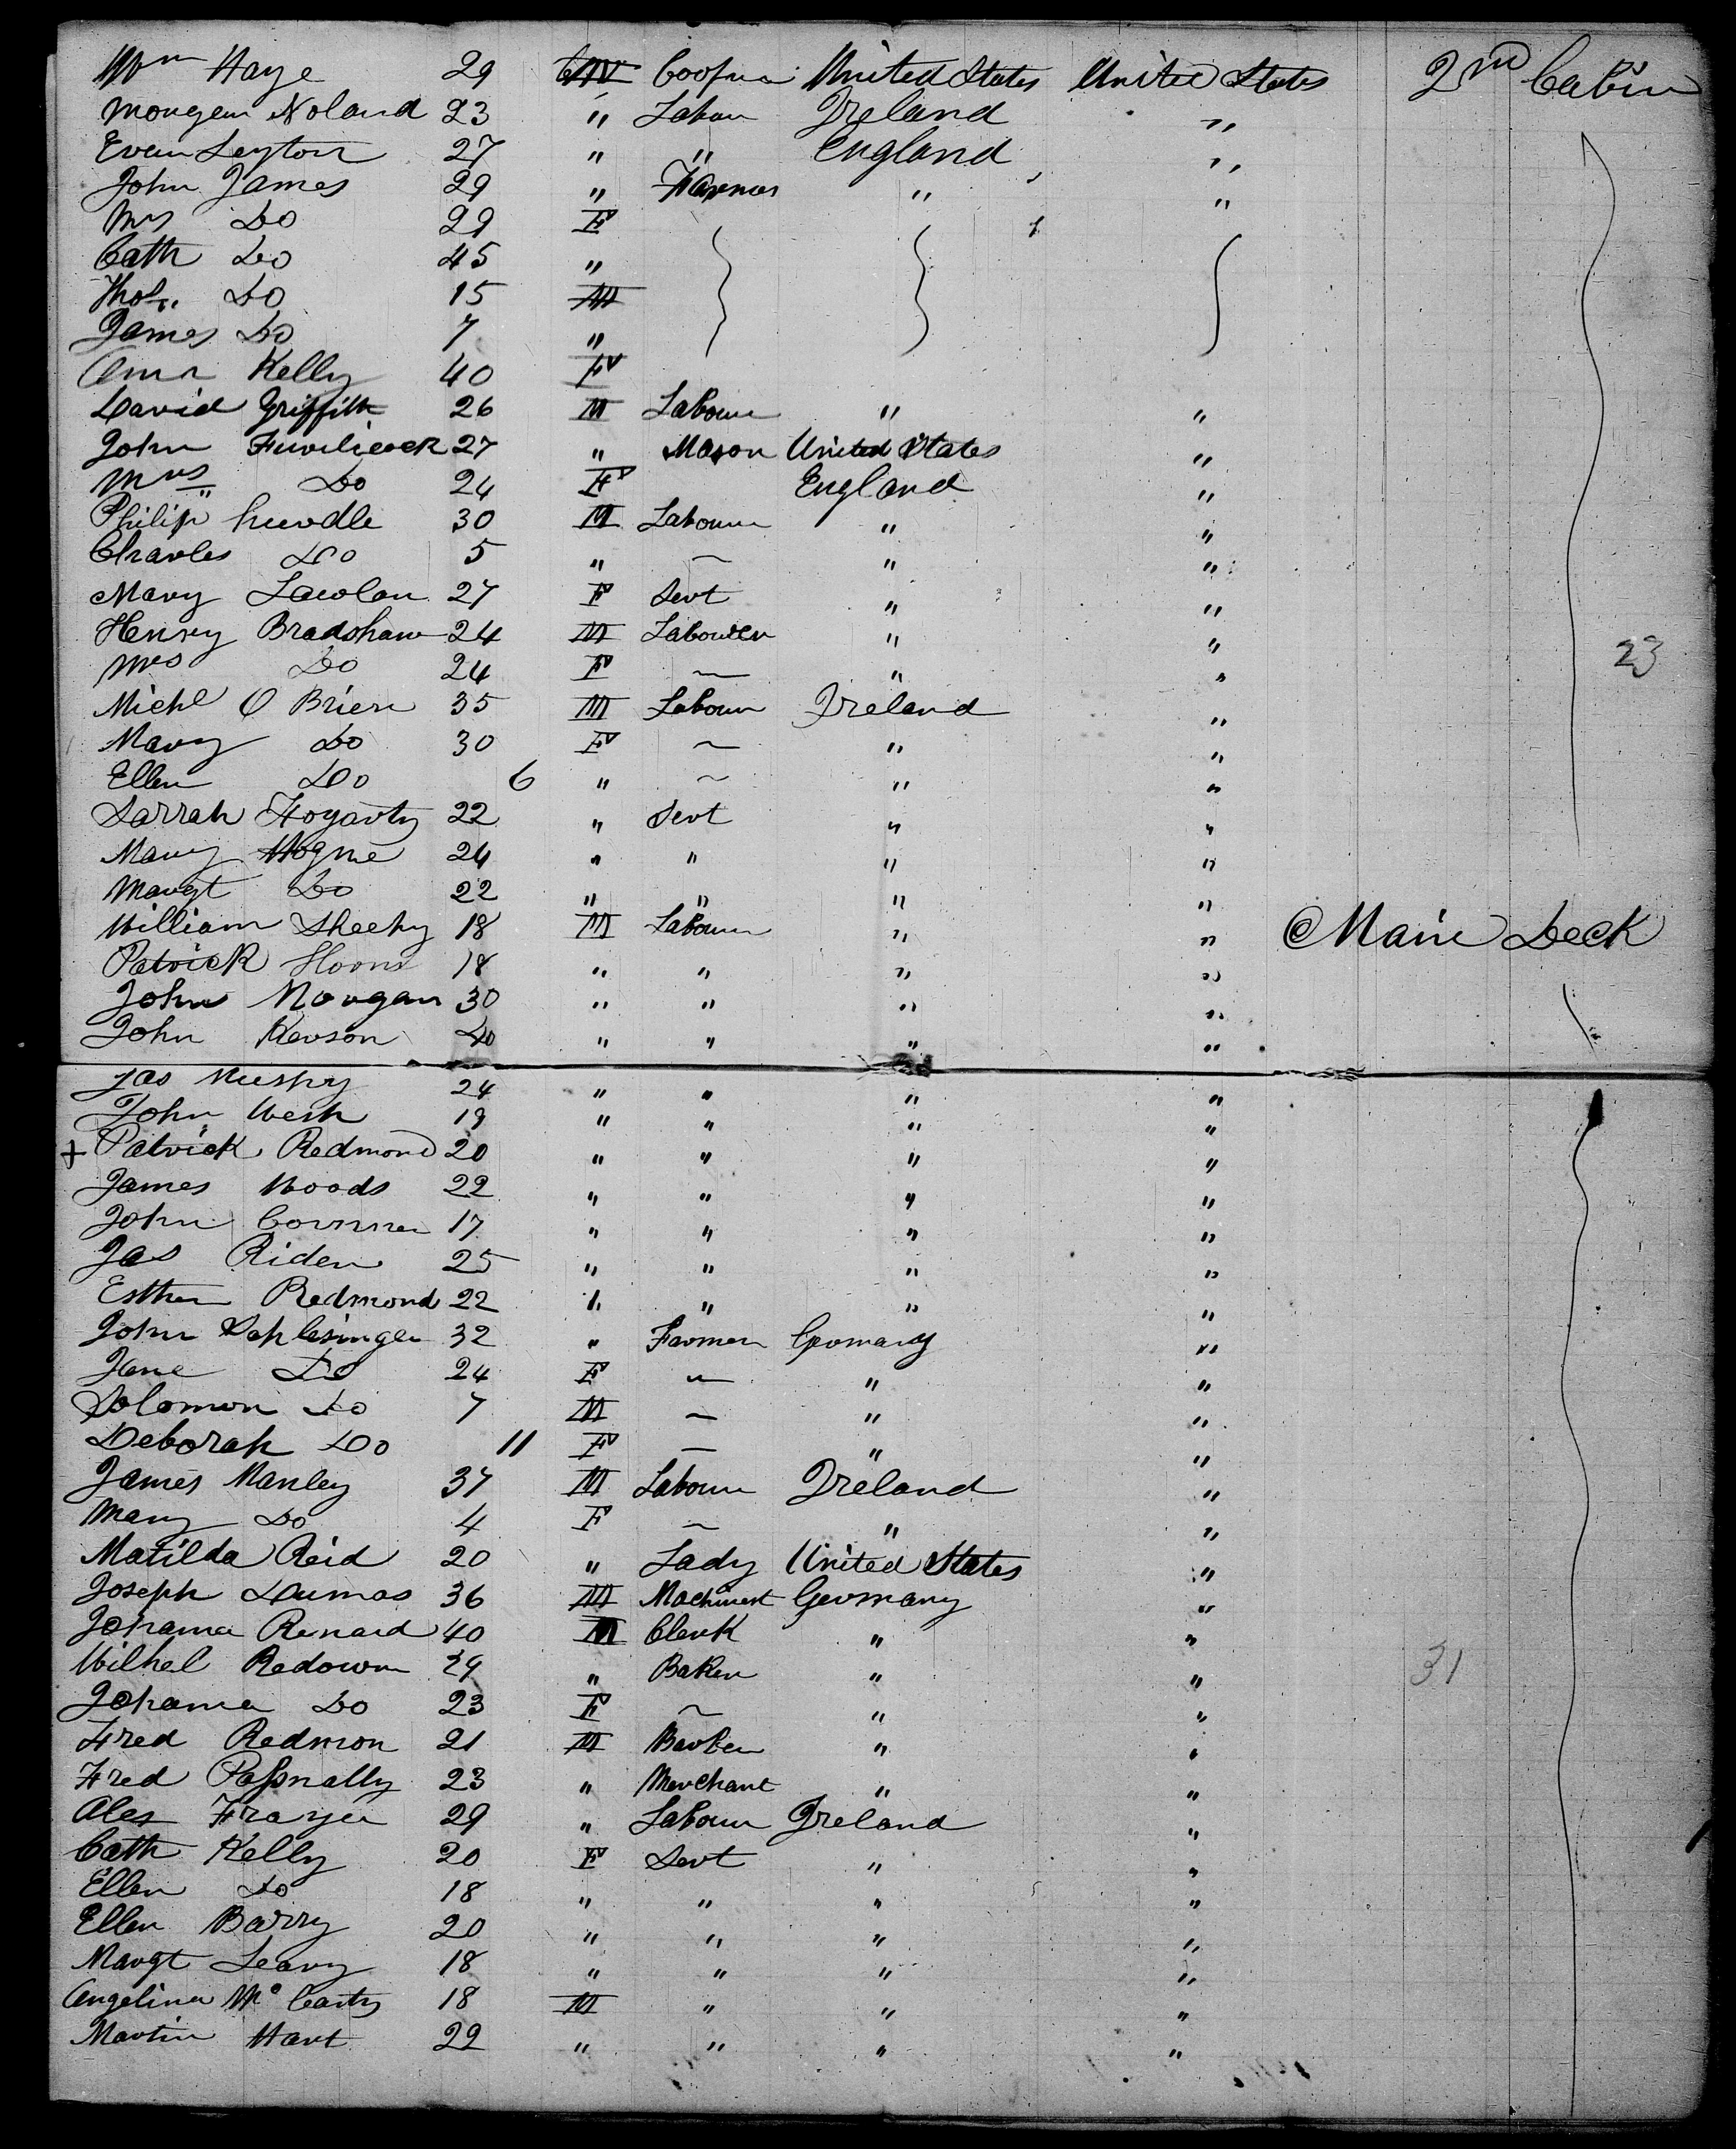 Wm Haye 29 M Cooper United States United States 2nd Cabin
Morgan Noland 23 " Labour Ireland "
Evan Leyton 27 " " England "
John James 29 " Farmer " "
Mrs Do 29 F
Cath Do 45 "
Thos. Do 15 M
James Do 7 "
Ann Kelly 40 F
David Griffith 26 M Labour " "
John 27 " Mason United States "
Mrs Do 24 F England "
Philip 30 M Labour " "
Charles Do 5 " ~ " "
Mary Lawlan 27 F Sevt " "
Henry Bradshaw 24 M Labourer " "
Mrs Do 24 F — " " 23
Michl O Brien 35 M Labour Ireland "
Mary Do 30 F ~ " "
Ellen Do 6 " ~ " "
Sarrah Hogarty 22 " Sevt " "
Mary Hogne 24 " " " "
Margt Do 22 " " " "
William Sheehy 18 M Labour " " Main Deck
Patrick 18 " " " "
John Morgan 30 " " " "
John Kevson " " " "
Jas 24 " " " "
John Wesh 19 " " " "
+ Patrick Redmond 20 " " " "
James Woods 22 " " " "
John Connner 17 " " " "
Jas Riden 25 " " " "
Esther Redmond 22 " " " "
John Schlesinger 32 " Farmer Germany "
Jane Do 24 F ~ " "
Solomon Do 7 M ~ " "
Deborah Do 11 F — " "
James Manley 37 M Labour Ireland "
Mary Do 4 F ~ " "
Matilda Reid 20 " Lady United States "
Joseph Dumas 36 M Machinest Germany "
Johanna Renard 40 M Clerk " "
Wilhel Redown 29 " Baker " " 31
Johanna Do 23 F ~ " "
Fred Redmon 21 M Barber " "
Fred Passnally 23 " Merchant " "
Alex Frazer 29 " Labour Ireland "
Cath Kelly 20 F Sevt " "
Ellen Do 18 " " " "
Ellen Barry 20 " " " "
Margt Leary 18 " " " "
Angelina Mc Carty 18 M " " "
Martin Hart 22 " " " "